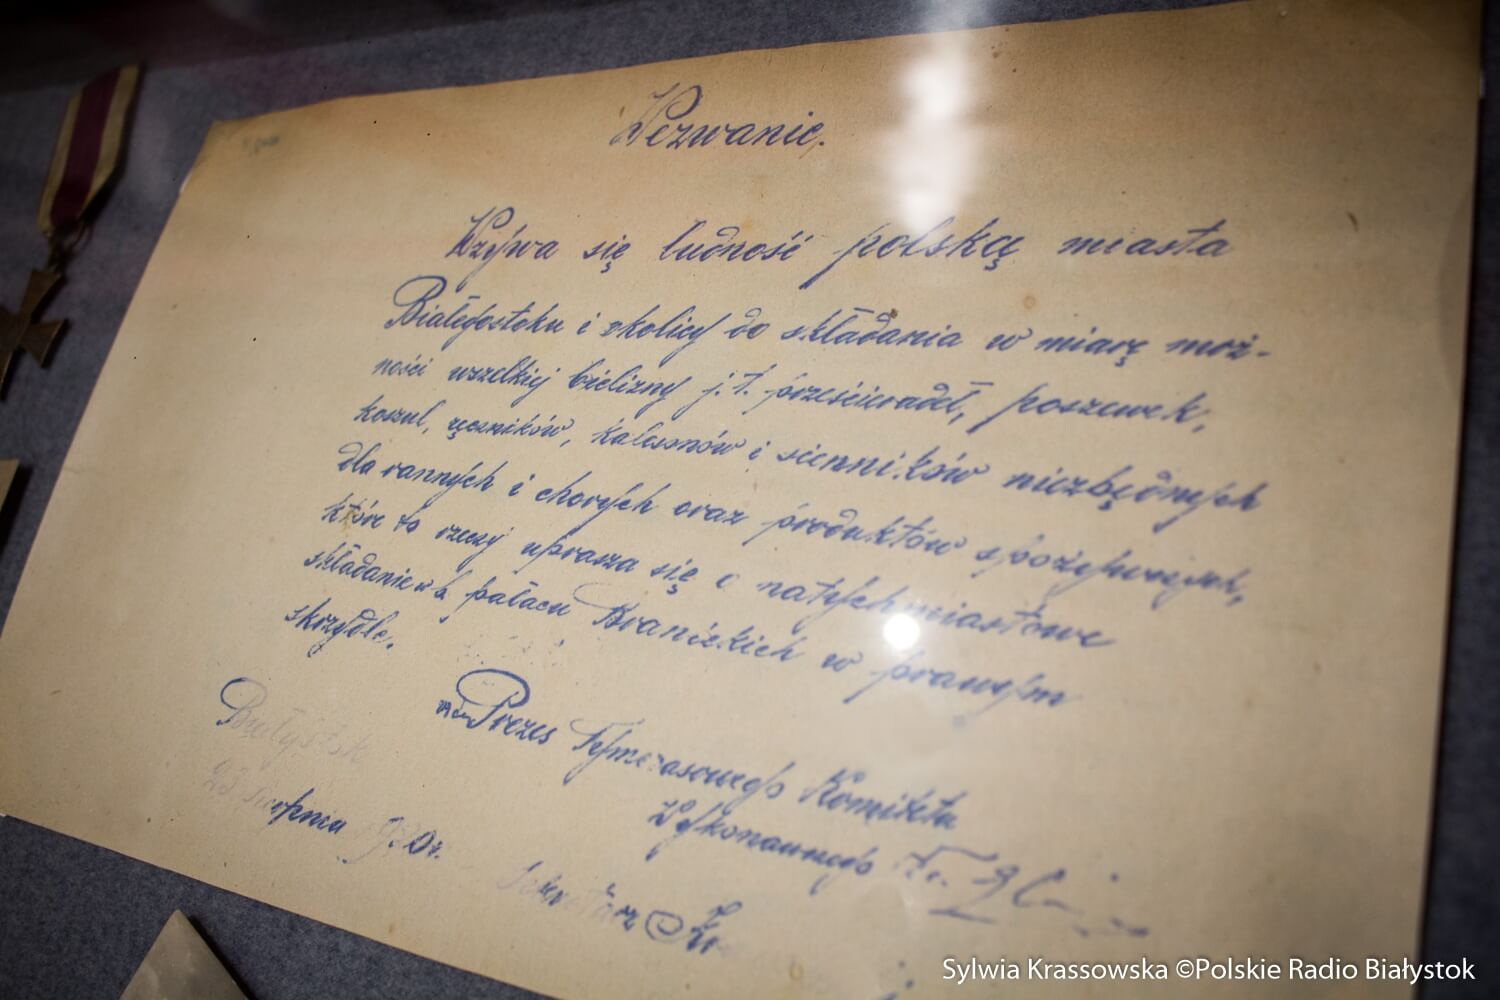 Wezwanie.
Wzywa się ludność polską miasta
Białegostoku i okolicy do składania w miarę moż-
ności wszelkiej bielizny j.t. prześcieradeł, poszewek,
koszul, ręczników, kalesonów i sienników niezbędnych
dla rannych i chorych oraz produktów spożywczych,
które to rzeczy uprasza się o natychmiastowe
składanie w pałacu Branickich w prawym
skrzydle.
Prezes Tymczasowego Komitetu
Wykonawczego
Białystok
sierpnia 1920r.
Sekretarz
Sylwia Krassowska ©Polskie Radio Białystok